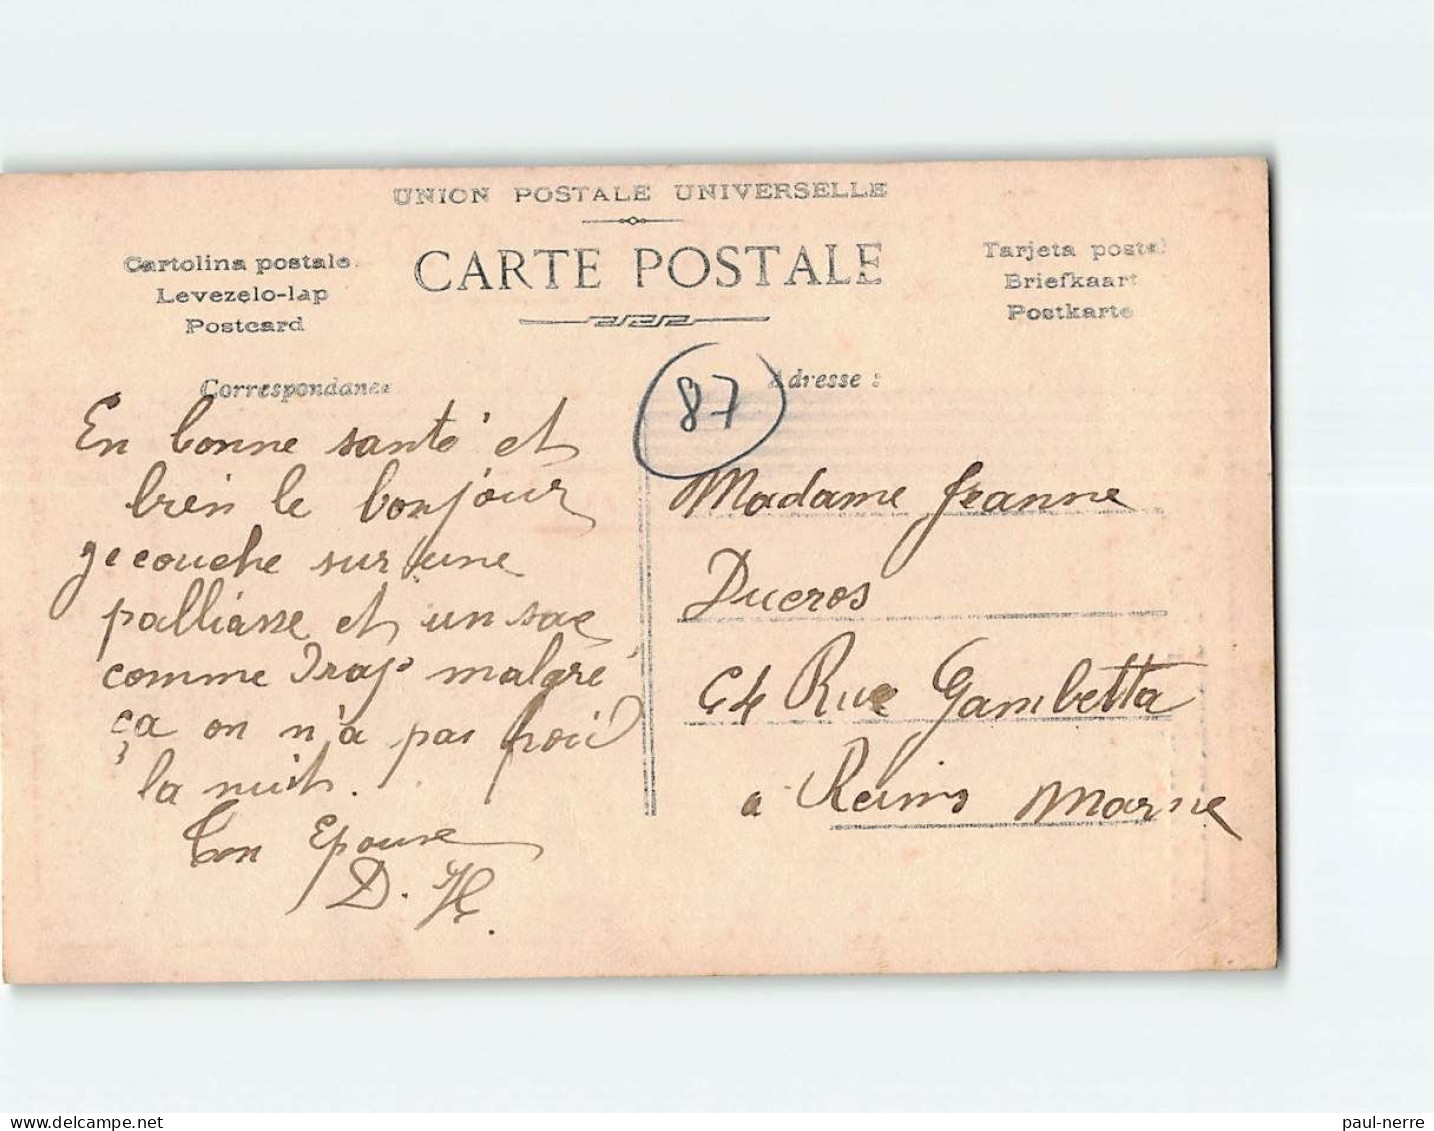 UNION POSTALE UNIVERSELLE
CARTE POSTALE
Cartolina postale
Levezelo-lap
Postcard
Tarjeta postal
Briefkaart
Postkarte
Correspondance
Adresse :
87
En bonne santé et
bien le bonjour
je couche sur une
palliasse et un sac
comme Drap malgré
ça on n'a pas froid
la nuit.
Ton Epoux
D. H.
Madame Jeanne
Ducros
64 Rue Gambetta
a Reims Marne
paul-nerre